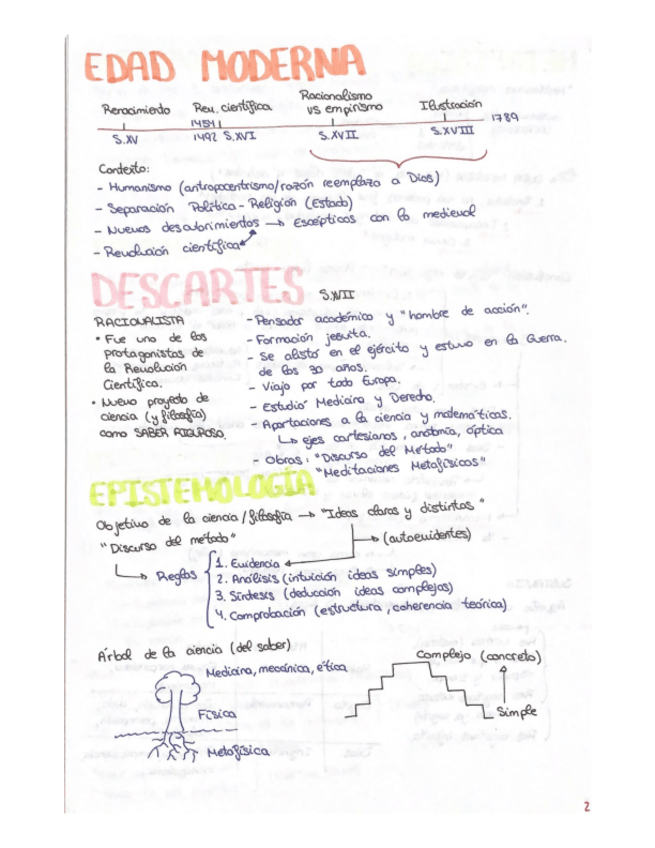 EDAD MODERNA
Renacimiento Rev. científica Racionalismo vs empirismo Ilustración
1454 1789
S.XV 1492 S.XVI S.XVII S.XVIII
Contexto:
- Humanismo (antropocentrismo/razón reemplaza a Dios)
- Separación Política - Religión (Estado)
- Nuevos descubrimientos → Escépticos con lo medieval
- Revolución científica
DESCARTES S.XVII
RACIONALISTA
• Fue uno de los
protagonistas de
la Revolución
Científica.
• Nuevo proyecto de
ciencia (y filosofía)
como SABER RIGUROSO.
- Pensador académico y "hombre de acción".
- Formación jesuita.
- Se alistó en el ejército y estuvo en la Guerra.
de los 30 años.
- Viajo por todo Europa.
- Estudió Medicina y Derecho.
- Aportaciones a la ciencia y matemáticas.
↳ ejes cartesianos, anatomía, óptica
- Obras: "Discurso del Método"
"Meditaciones Metafísicas"
EPISTEMOLOGÍA
Objetivo de la ciencia/filosofía → "Ideas claras y distintas"
→ (autoevidentes)
"Discurso del método"
↳ Reglas
1. Evidencia
2. Análisis (intuición ideas simples)
3. Síntesis (deducción ideas complejas)
4. Comprobación (estructura, coherencia teórica)
Árbol de la ciencia (del saber)
Medicina, mecánica, ética
Física
Metafísica
Complejo (concreto)
Simple
2